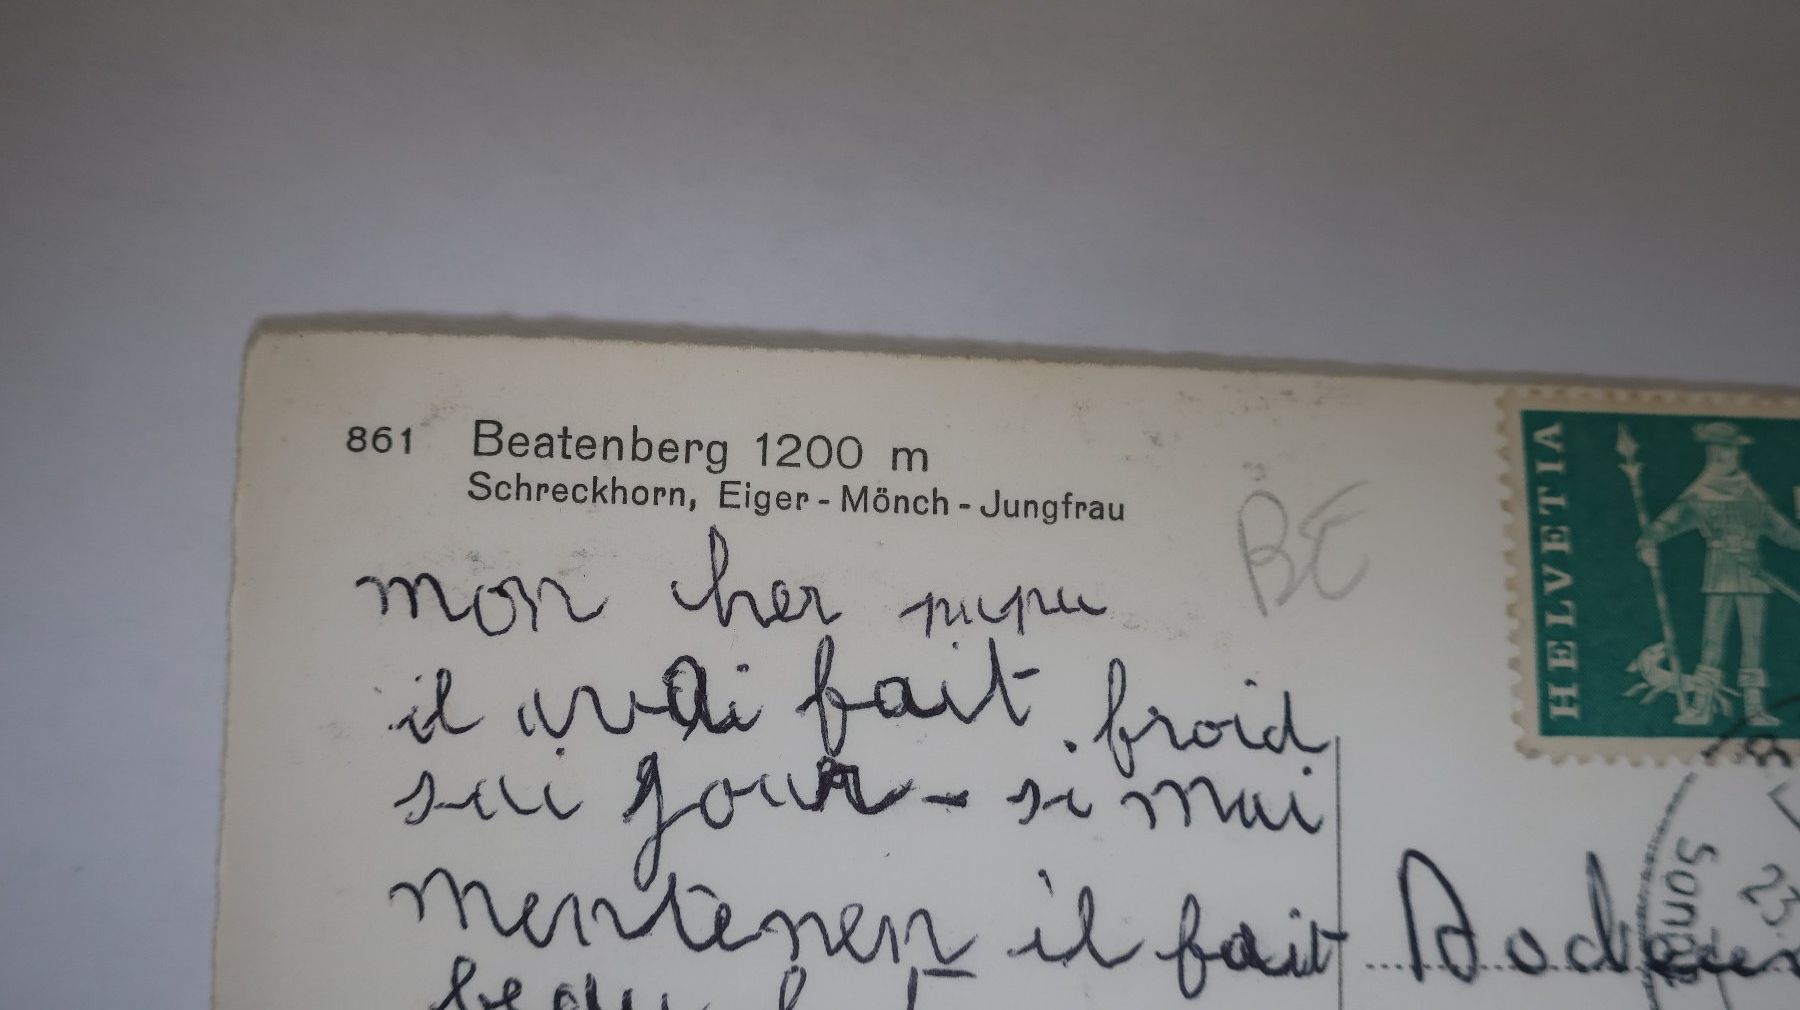 861 Beatenberg 1200 m
Schreckhorn, Eiger - Mönch - Jungfrau
BE
HELVETIA
mon her papa
il avai fait froid
sai jour - si mai
mentenen il fait
beau
Sonn
23.